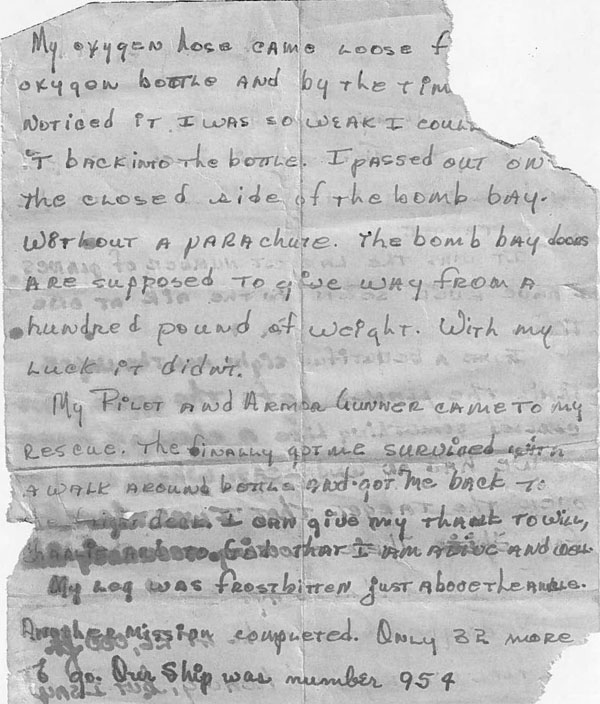 My oxygen hose came loose f
oxygen bottle and by the tim
noticed it I was so weak I coul
it back into the bottle. I passed out on
the closed side of the bomb bay.
Without a parachute. The bomb bay doors
are supposed to give way from a
hundred pound of weight. With my
luck it didn't.
My Pilot and Armor Gunner came to my
rescue. The finally got me survived with
a walk around bottle and got me back to
the flight deck. I can give my thank to Will,
and to God that I am alive and well
My leg was frostbitten just above the ankle.
Another mission completed. Only 32 more
to go. Our ship was number 954